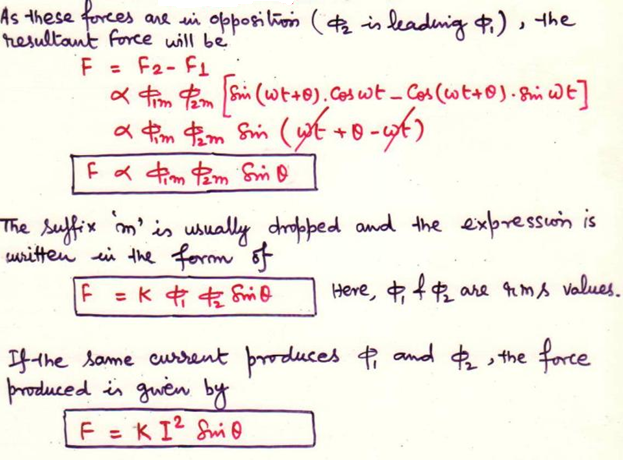 As these forces are in opposition (ϕ₂ is leading ϕ₁), the
resultant force will be
F = F₂ - F₁
∝ ϕ₁m ϕ₂m [Sin(ωt+θ).Cos ωt - Cos(ωt+θ).Sin ωt]
∝ ϕ₁m ϕ₂m Sin (ωt + θ - ωt)
F ∝ ϕ₁m ϕ₂m Sin θ
The suffix 'm' is usually dropped and the expression is
written in the form of
F = K ϕ₁ ϕ₂ Sin θ Here, ϕ₁ & ϕ₂ are rms values.
If the same current produces ϕ₁ and ϕ₂, the force
produced is given by
F = K I² Sin θ